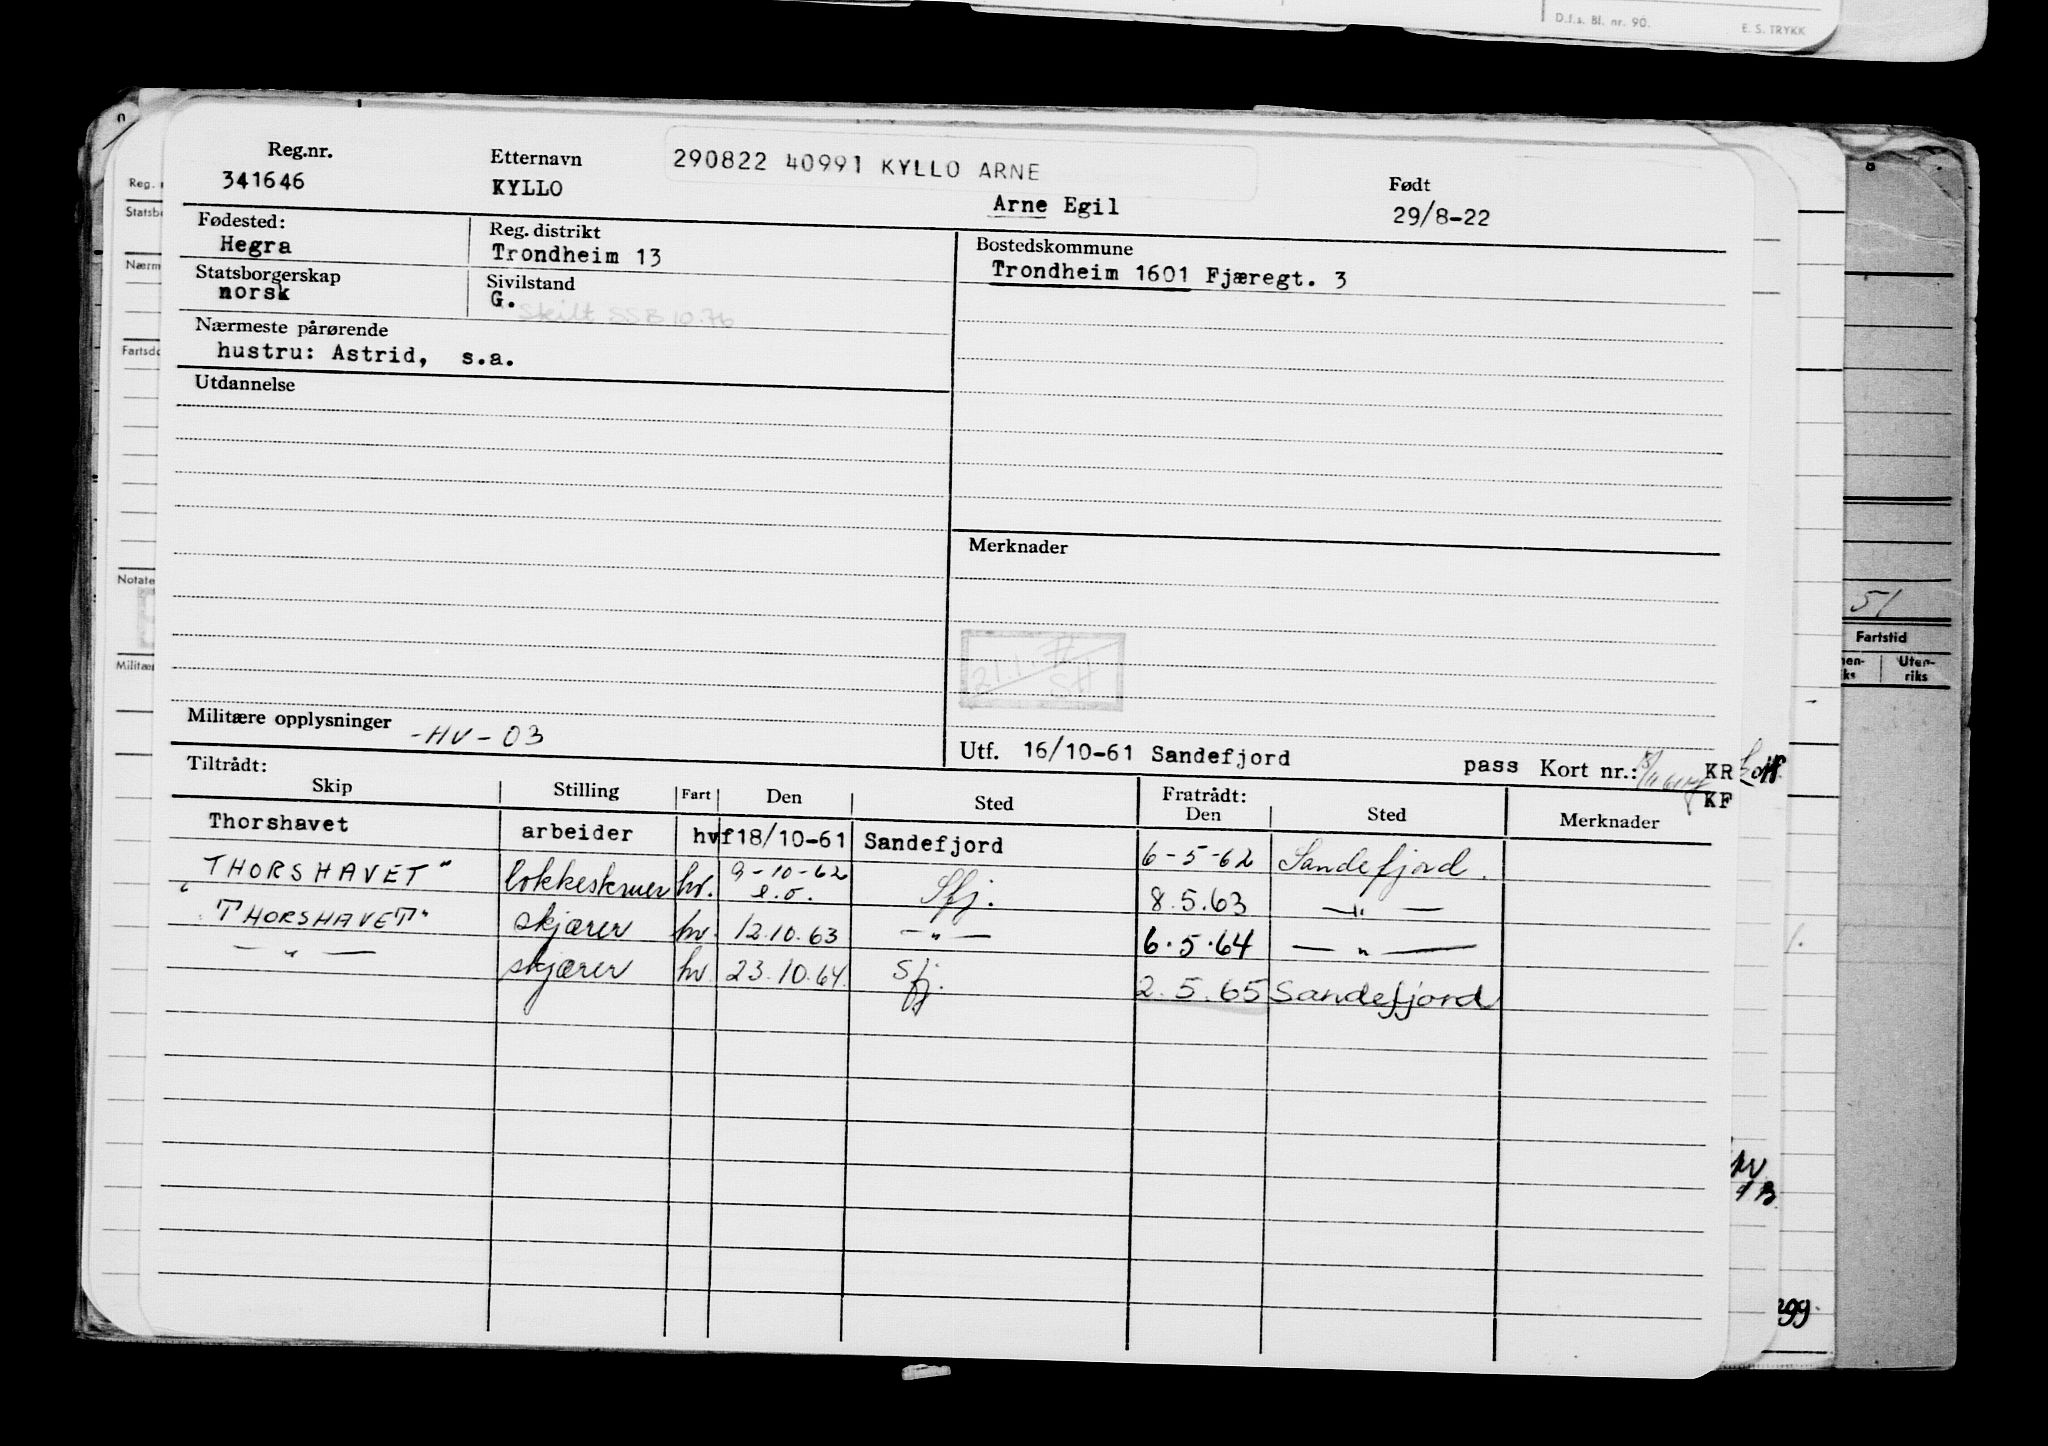 D.f.s. Bl. nr. 90.
E. S. TRYKK
Reg.nr.
341646
Etternavn
KYLLO
290822 40991 KYLLO ARNE
Arne Egil
Født
29/8-22
Fødested:
Hegra
Reg. distrikt
Trondheim 13
Bostedskommune
Trondheim 1601 Fjæregt. 3
Statsborgerskap
norsk
Sivilstand
G.
Skilt SSB 10.76
Nærmeste pårørende
hustru: Astrid, s.a.
Utdannelse
Merknader
21.1.
SH
Militære opplysninger -HV-03
Utf. 16/10-61 Sandefjord pass Kort nr.: KR
KF
Tiltrådt:
Skip Stilling Fart Den Sted Fratrådt: Den Sted Merknader
Thorshavet arbeider hvf 18/10-61 Sandefjord 6-5-62 Sandefjord.
"THORSHAVET" hv. 9-10-62 Sfj. 8.5.63 — " —
"THORSHAVET" skjærer hv. 12.10.63 — " — 6.5.64 — " —
— " — skjærer hv. 23.10.64. Sfj. 2.5.65 Sandefjord
Reg.
Statsb
Nærm
Notate
Militær
51
Fartstid
Uten-
riks
hv.
299.